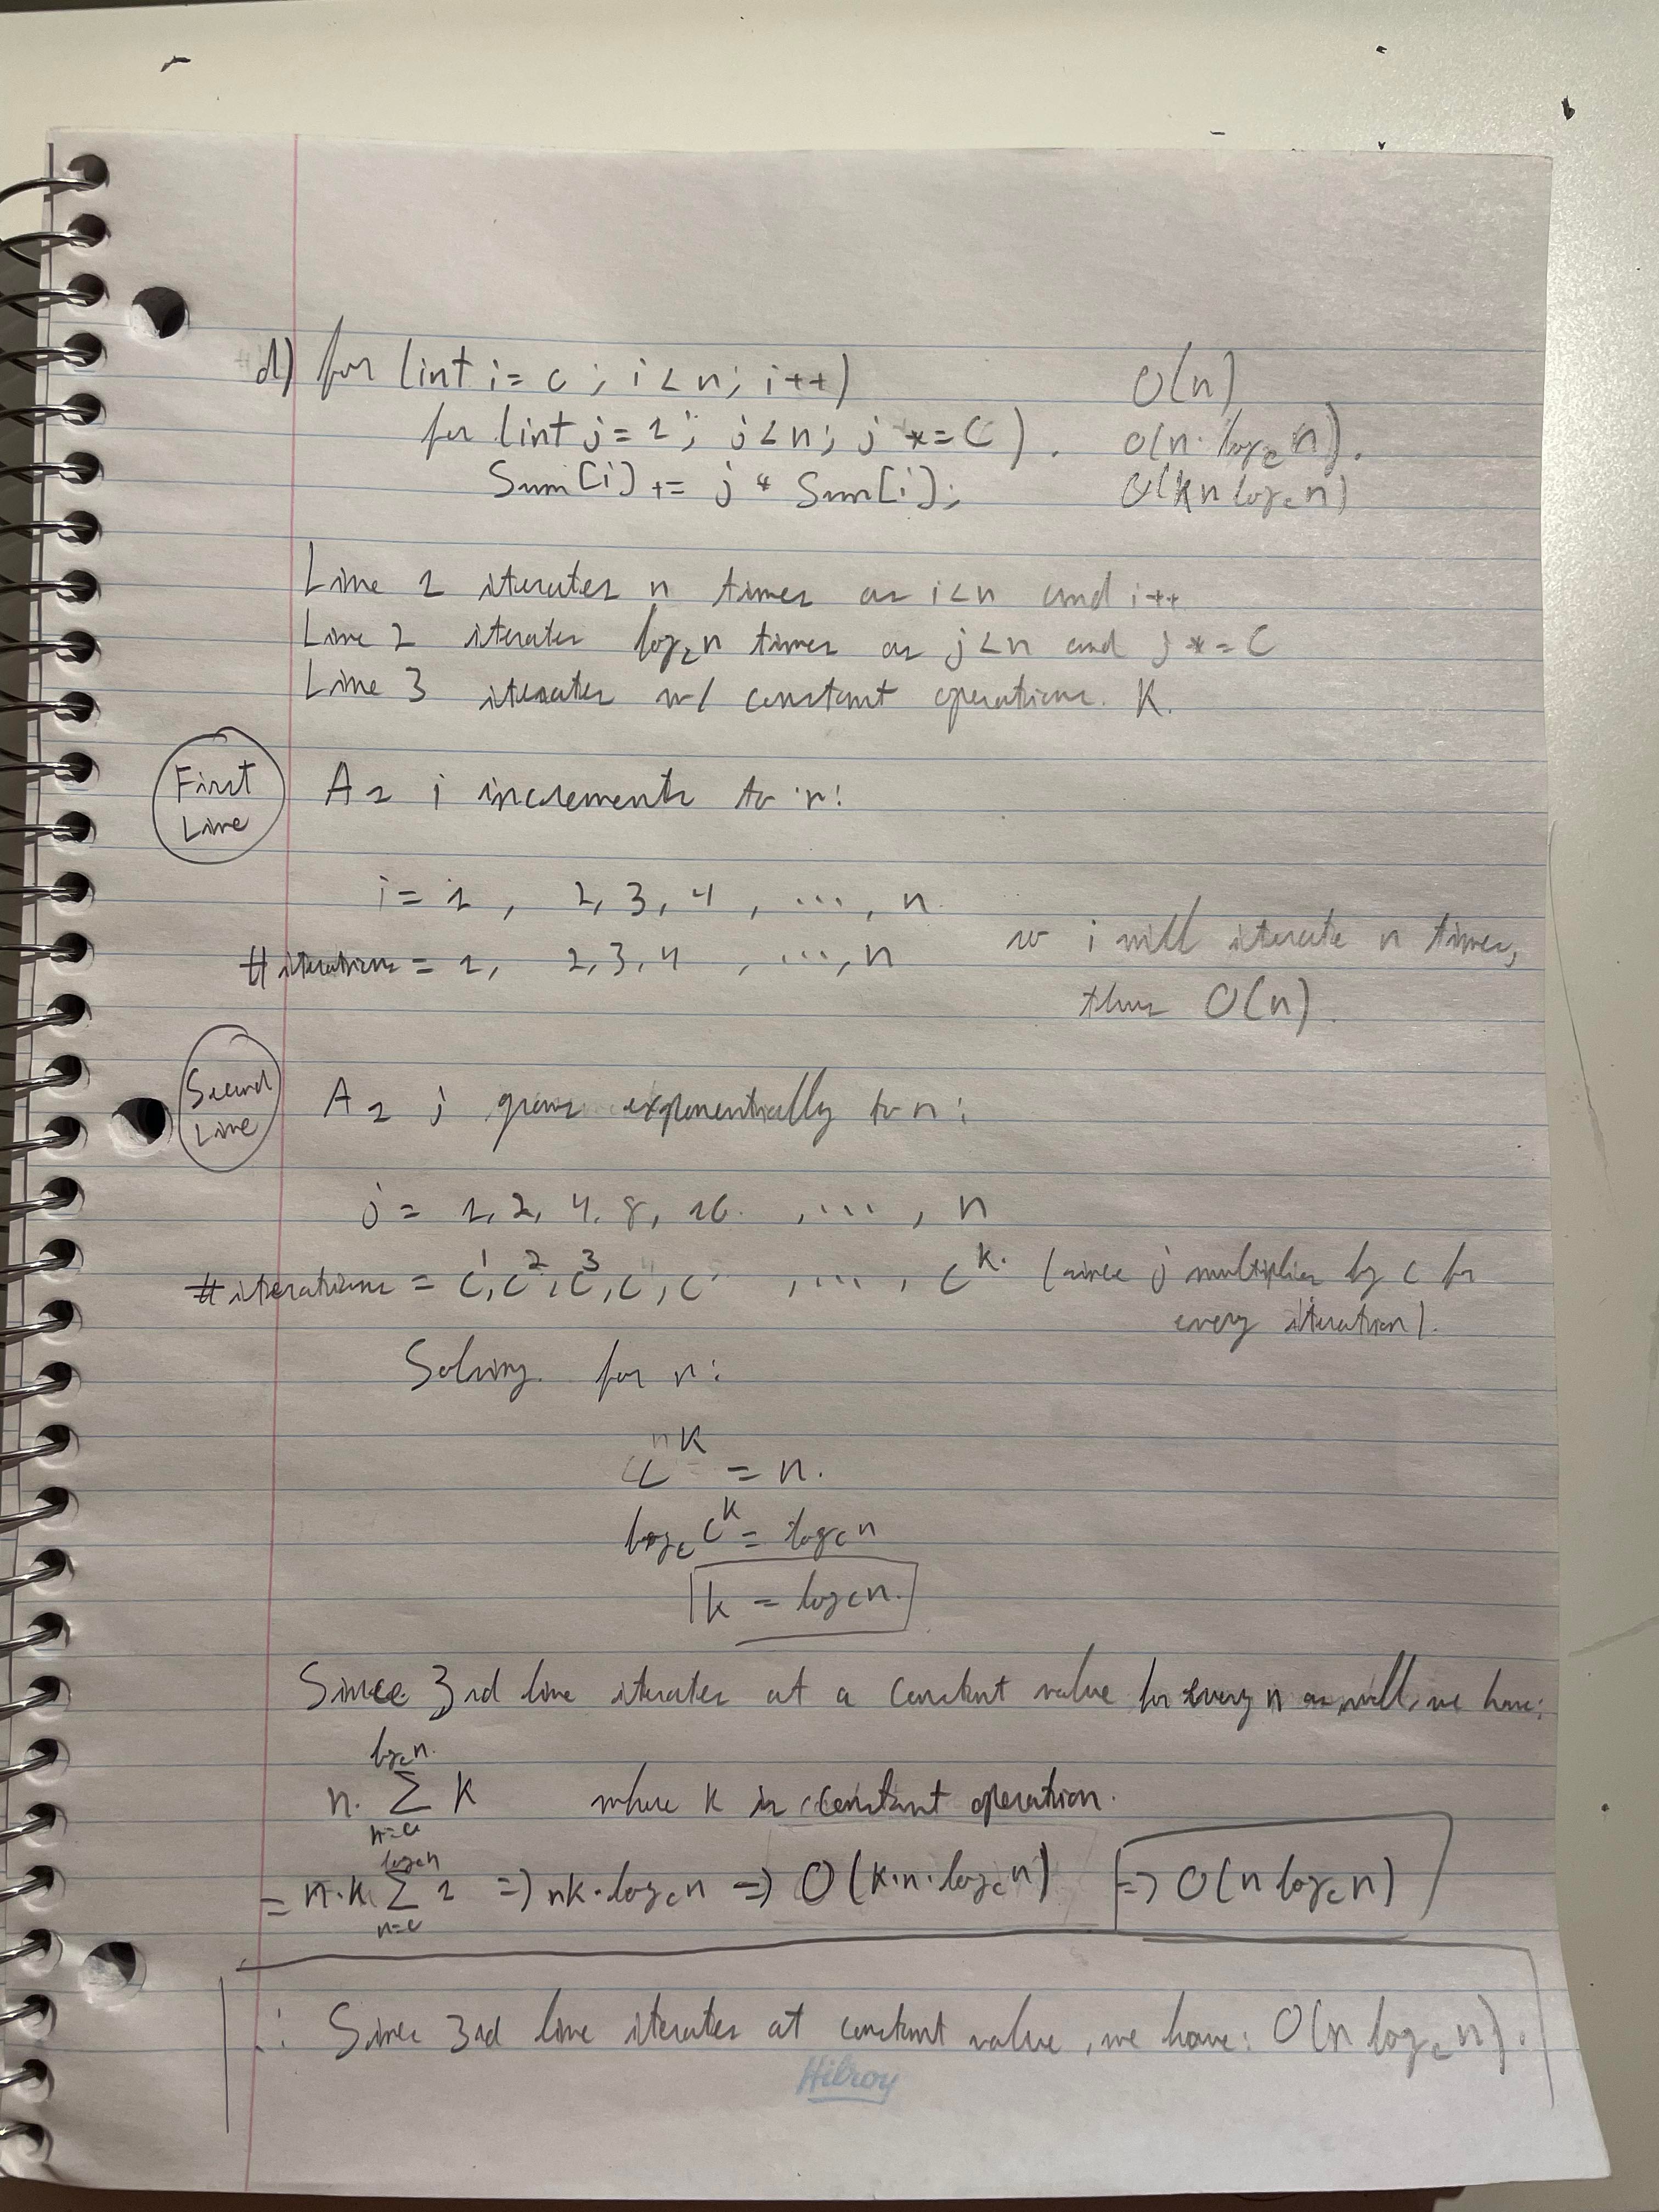 d) for (int i = c; i < n; i++) O(n)
for (int j = 1; j < n; j *= C). O(n · log_c n).
Sum[i] += j * Sum[i]; O(k n log_c n)
Line 1 iterates n times as i < n and i++
Line 2 iterates log_c n times as j < n and j *= C
Line 3 iterates w/ constant operations. K.
First Line
As i increments to n:
i = 1, 2, 3, 4, ..., n
# iterations = 1, 2, 3, 4, ..., n
so i will iterate n times,
thus O(n).
Second Line
As j grows exponentially to n:
j = 1, 2, 4, 8, 16. , ..., n
# iterations = c^1, c^2, c^3, c, c, ..., c^k. (since j multiplies by c for
every iteration).
Solving for n:
c^k = n.
log_c c^k = log_c n
k = log_c n.
Since 3rd line iterates at a constant value for every n as well, we have:
n. Σ_{n=c}^{log_c n.} k where k is constant operation.
= n·k Σ_{n=c}^{log_c n} 1 => nk·log_c n => O(k·n·log_c n) => O(n log_c n)
∴ Since 3rd line iterates at constant value, we have: O(n log_c n).
Hilroy